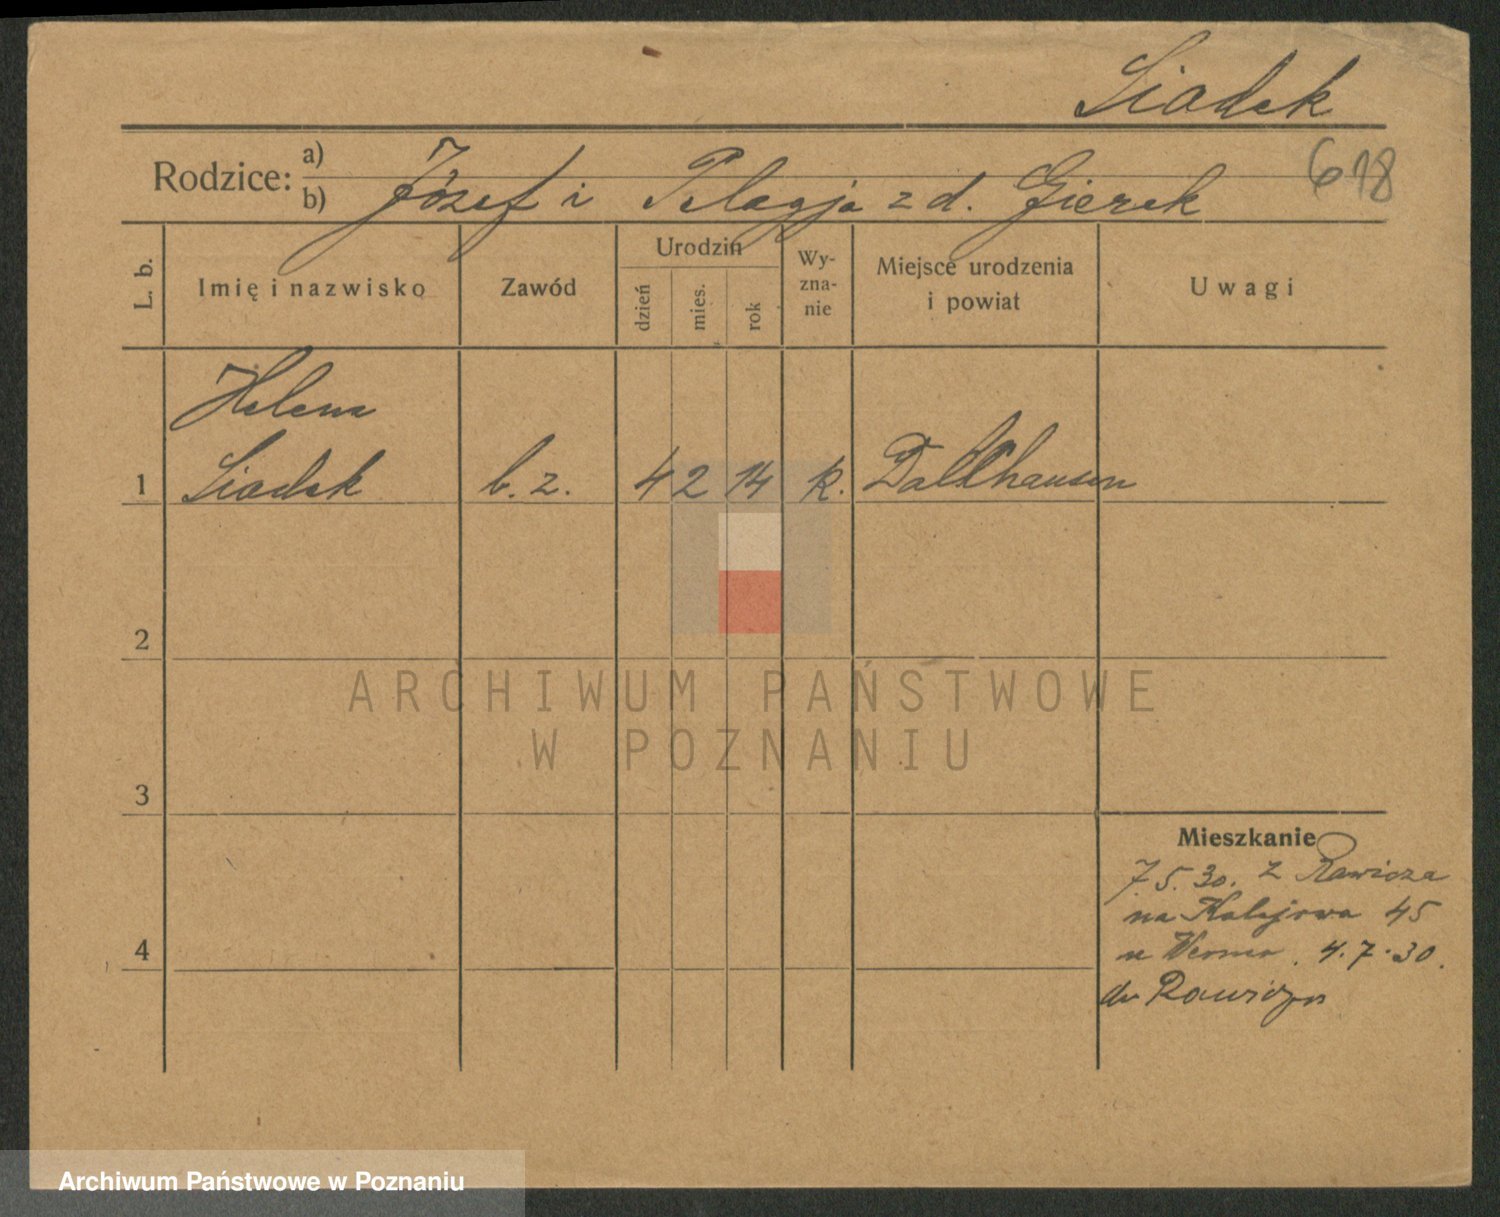 Siadek
Rodzice: a)
b) Józef i Pelagja z d. Gierek
618
L. b.
Imię i nazwisko
Zawód
Urodzin
dzień
mies.
rok
Wy-
zna-
nie
Miejsce urodzenia
i powiat
Uwagi
Helena
1 Siadek b. z. 4 2 14 k. Dallhausen
2
3
4
Mieszkanie
7.5.30. z Rawicza
na Kolejowa 45
u Werner. 4.7.30.
do Rawicza
ARCHIWUM PAŃSTWOWE
W POZNANIU
Archiwum Państwowe w Poznaniu